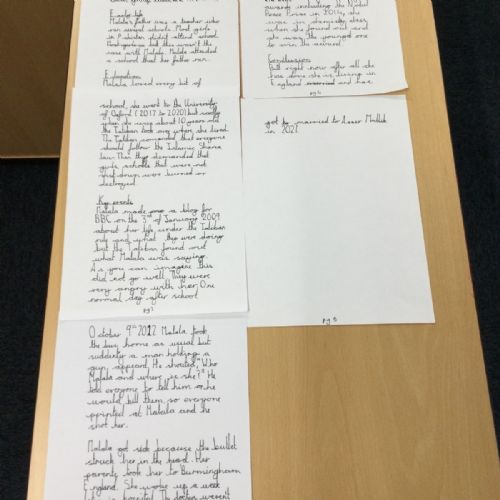 Family life
Malala's father was a teacher who
ran several schools. Most girls
in Pakistan didn't attend school.
this wasn't the
case with Malala. Malala attended
a school that her father ran.
Education
Malala loved every bit of
school, she went to the University
of Oxford (2017 to 2020) but sadly
when she was about 10 years old
the Taliban took over where she lived.
The Taliban comanded that everyone
should follow the Islamic Sharia
law. Then they demanded that
girls schools that were not
shut down were burned or
destroyed.
Key events
Malala made a blog for
BBC on the 3rd of January 2009
about her life under the Taliban
rule and what they were doing
but the Taliban found out
what Malala was saying.
As you can imagine this
did not go well. They were
very angry with her. One
normal day after school
pg 2
October 9th 2012 Malala took
the bus home as usual but
suddenly a man holding a
gun, appeard. He shouted, "Who
Malala and where is she?" He
told everyone to tell him or he
would kill them so everyone
pointed at Malala and he
shot her.
Malala got sick because the bullet
struck her in the head. Her
parents took her to Burmingham
England. She woke up a week
in hospital. The doctors weren't
awards including the Nobel
Peace Prize in 2014, she
was in chemistry class
when she found out and
she was the youngest one
to win the award.
Conclusion
But right now after all she
has done she is living in
England and has
pg 4
got to married to Asser Mallik
in 2021
pg 5